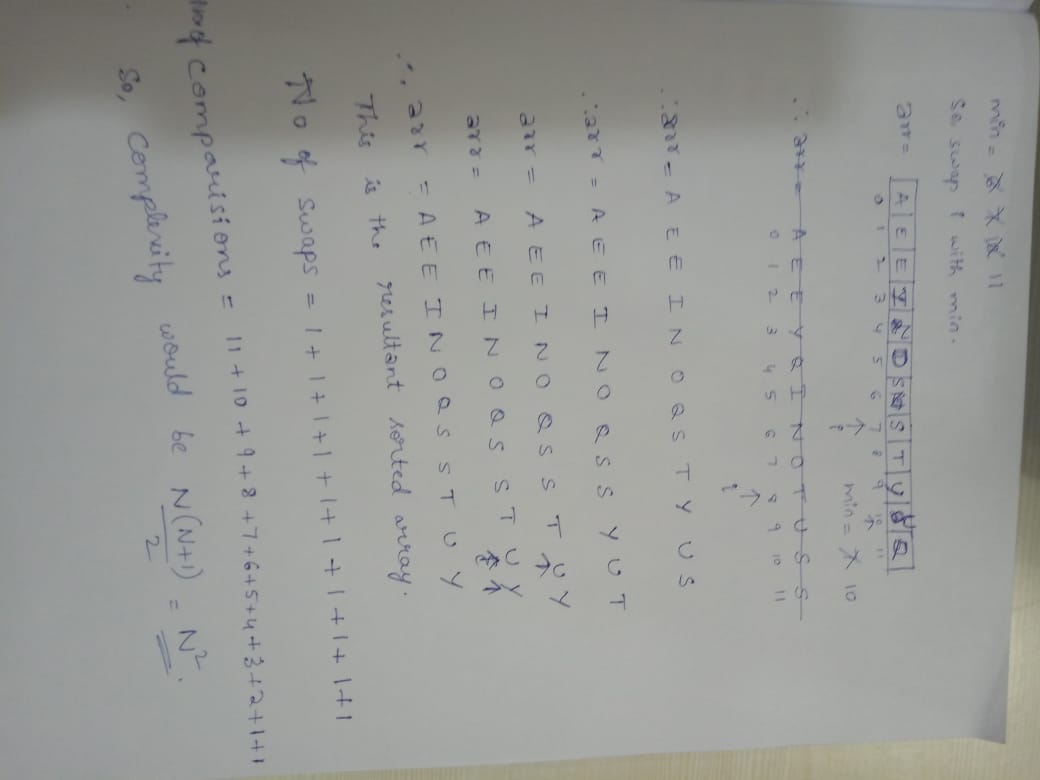 min = 8 7 10 11
So swap i with min.
arr = A E E I N O S S T Y Q
0 1 2 3 4 5 6 7 8 9 10 11
i min = 7 10
∴ arr = A E E Y Q I N O T U S S
0 1 2 3 4 5 6 7 8 9 10 11
i
∴ arr = A E E I N O Q S T Y U S
∴ arr = A E E I N O Q S S Y U T
arr = A E E I N O Q S S T U Y
arr = A E E I N O Q S S T U Y
∴ arr = A E E I N O Q S S T U Y
This is the resultant sorted array.
No of swaps = 1 + 1 + 1 + 1 + 1 + 1 + 1 + 1 + 1 + 1 + 1
of comparisions = 11 + 10 + 9 + 8 + 7 + 6 + 5 + 4 + 3 + 2 + 1 + 1
So, complexity would be N(N+1)/2 = N².